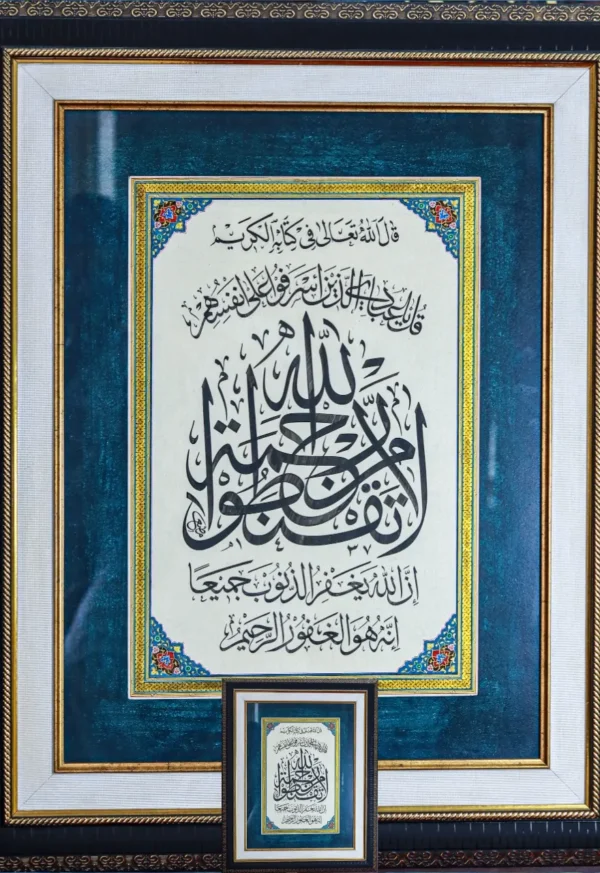 قال الله تعالى في كتابه الكريم
قل يا عبادي الذين أسرفوا على أنفسهم
لا تقنطوا من رحمة الله
إن الله يغفر الذنوب جميعا
إنه هو الغفور الرحيم